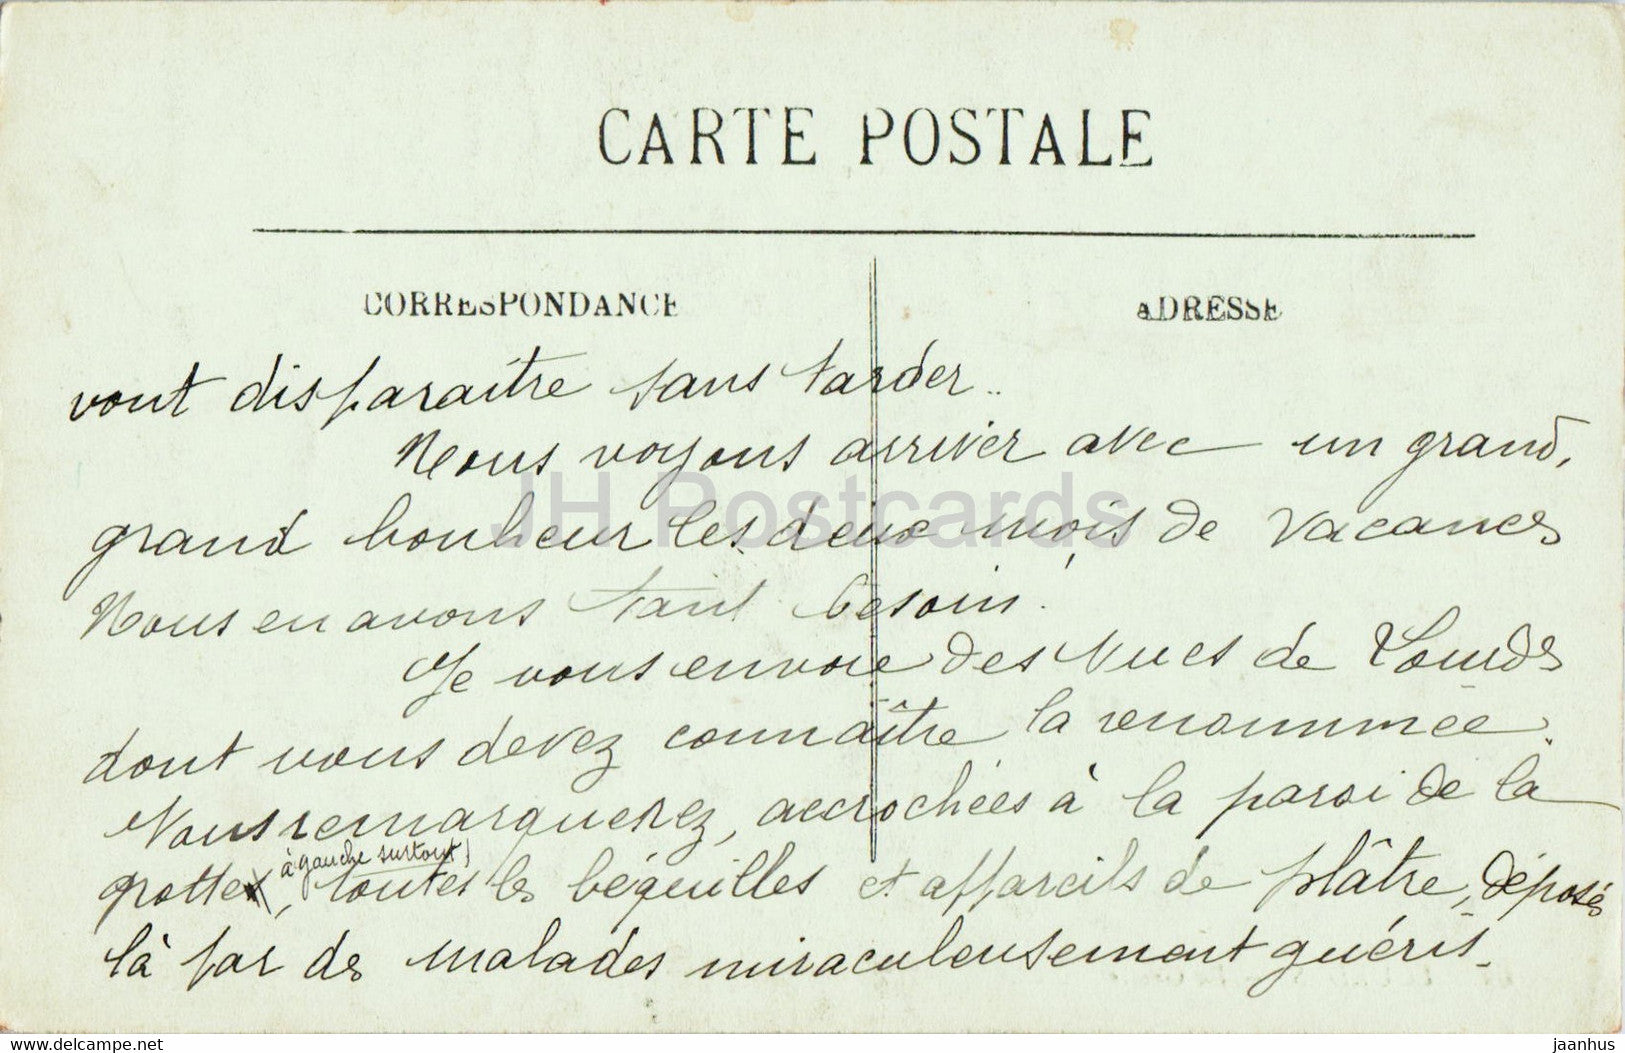 CARTE POSTALE
CORRESPONDANCE
ADRESSE
vont disparaître sans tarder..
Nous voyons arriver avec un grand,
grand bonheur les deux mois de vacances
Nous en avons tant besoin.
Je vous envoie des vues de Lourdes
dont vous devez connaître la renommée.
Vous remarquerez, accrochées à la paroi de la
à gauche surtout)
grotte, toutes les béquilles et appareils de plâtre, déposés
là par des malades miraculeusement guéris.
JH Postcards
www.delcampe.net
jaanhus